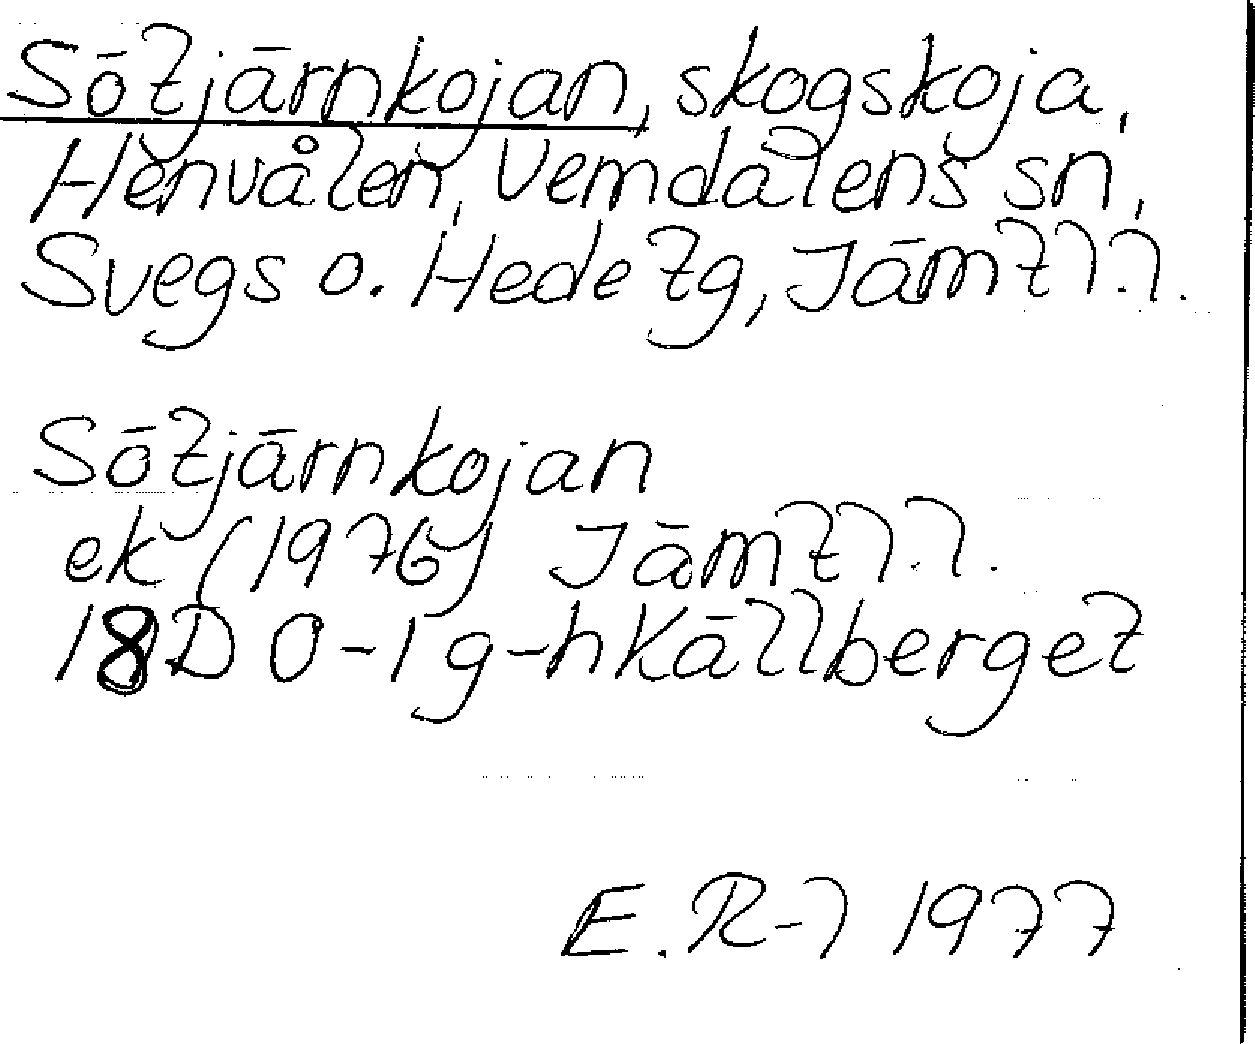 Sötjärnkojan, skogskoja,
Henvålen, Vemdalens sn,
Svegs o. Hede tg, Jämtl.l.
Sötjärnkojan
ek (1976) Jämtl.l.
18D 0-1 g-h Källberget
E. R-l 1977